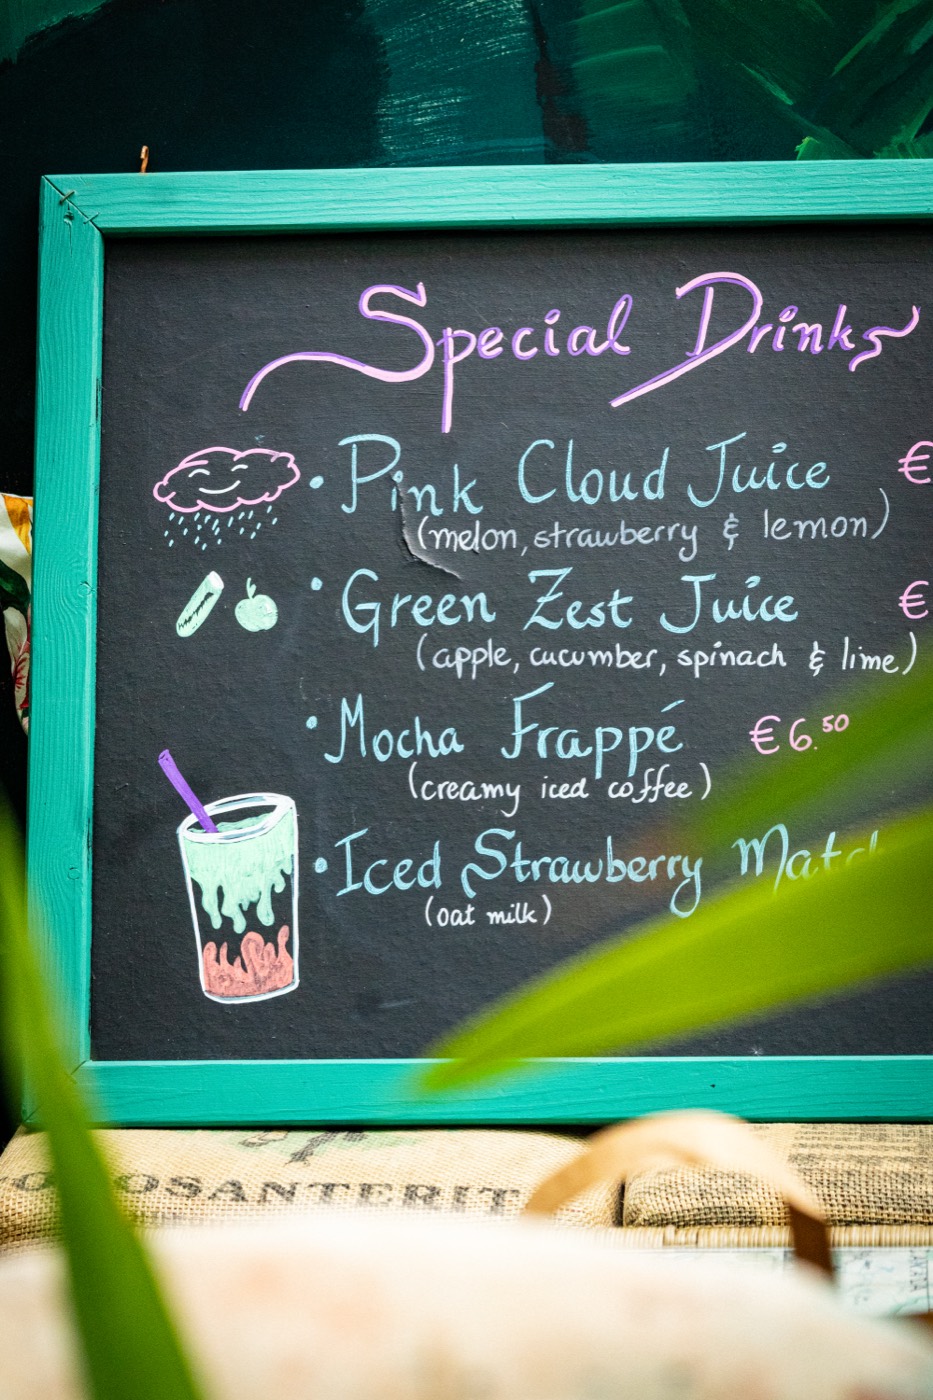 Special Drinks
• Pink Cloud Juice €
(melon, strawberry & lemon)
• Green Zest Juice €
(apple, cucumber, spinach & lime)
• Mocha Frappé €6.50
(creamy iced coffee)
• Iced Strawberry
(oat milk)